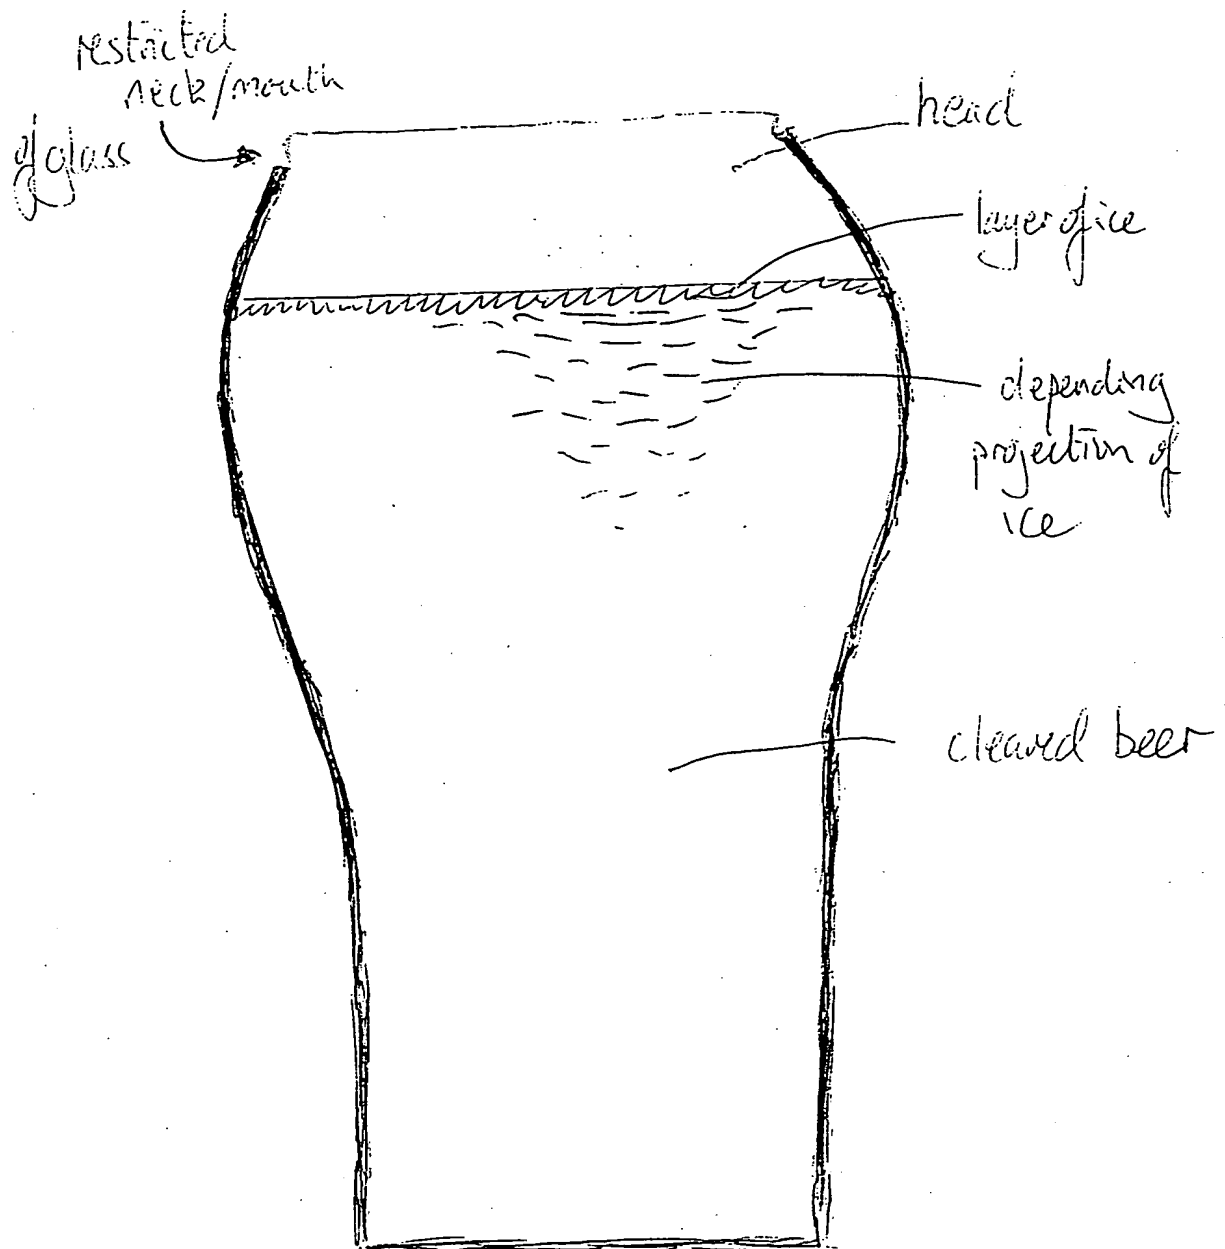 restricted
neck/mouth
of glass
head
layer of ice
depending
projection of
ice
cleared beer